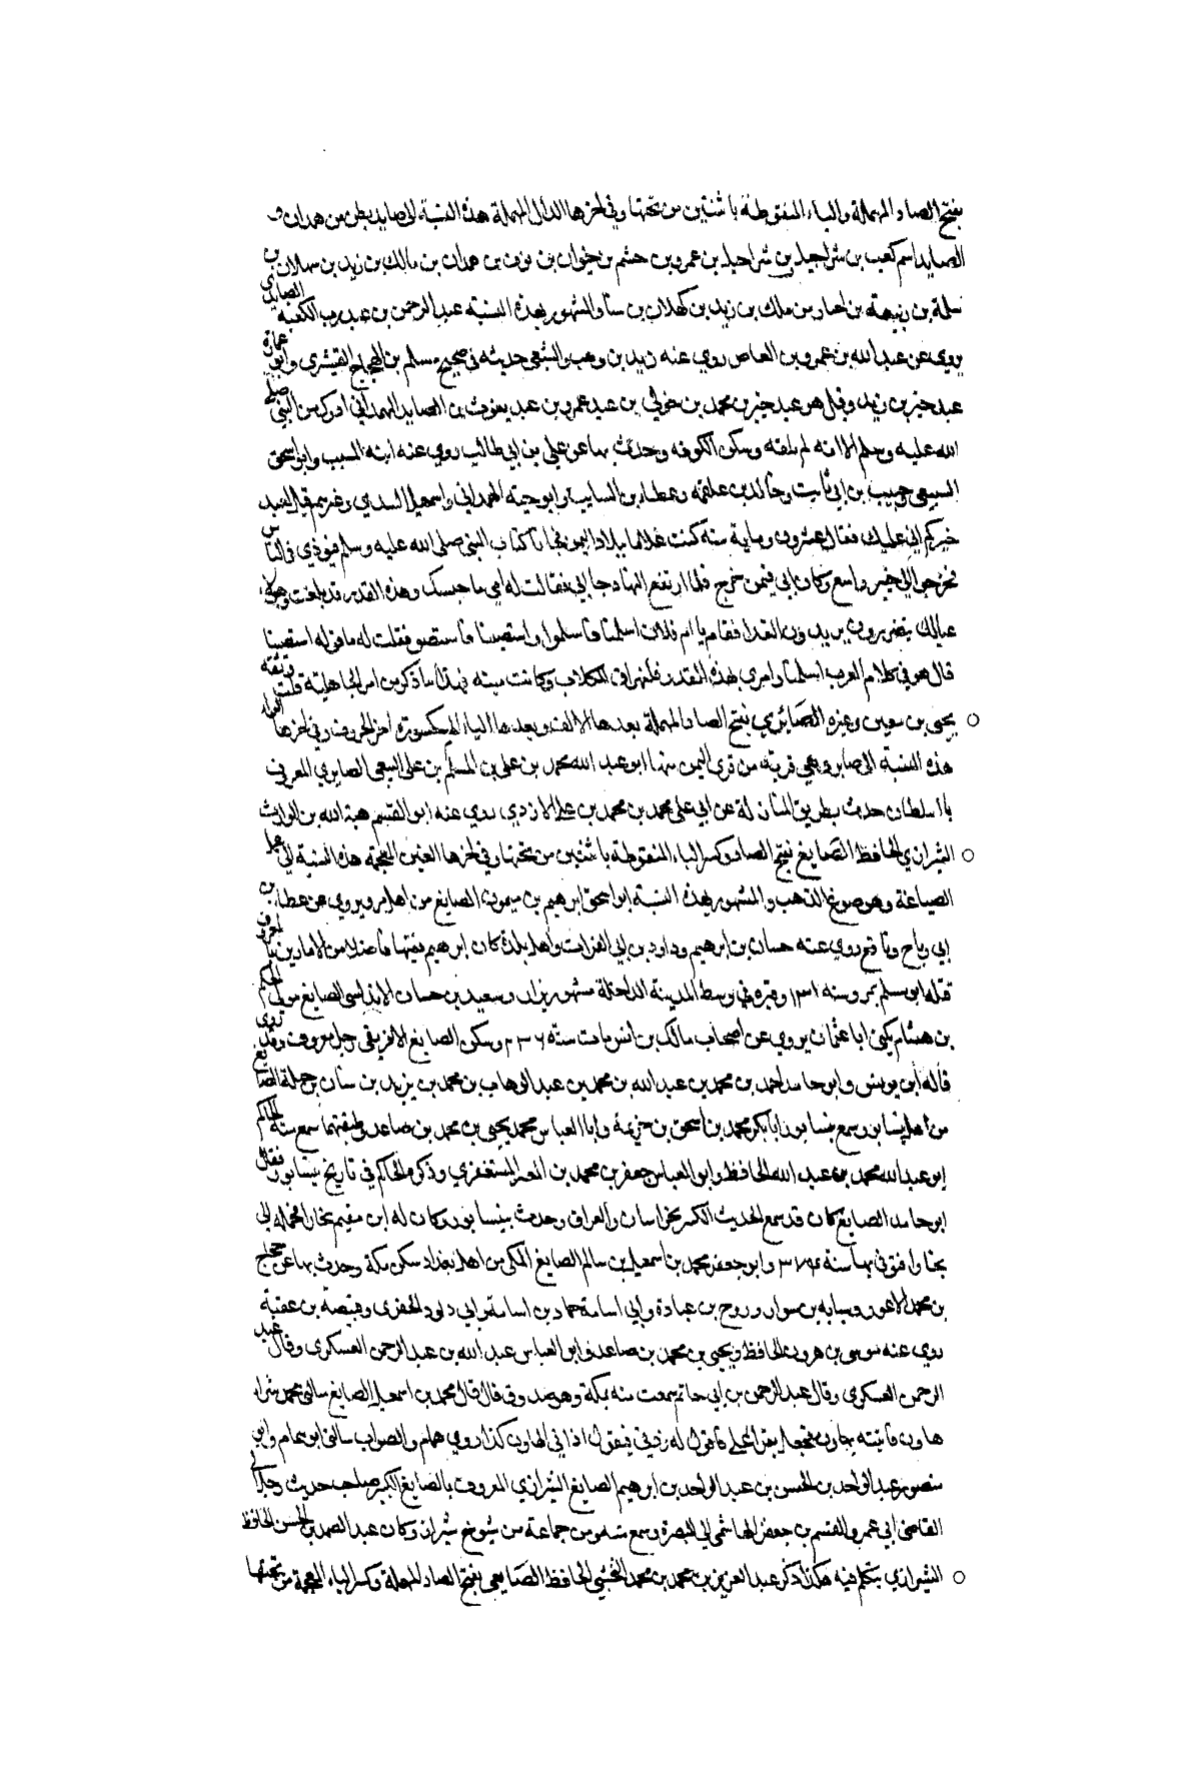 بفتح الصاد المهملة والياء المنقوطة باثنتين من تحتها وفي اخرها الدال المهملة هذه النسبة الى صايد بطن من همدان و
الصايد اسم كعب بن شراحيل بن شراحيل بن عمرو بن جشم بن خيوان بن نوف بن همدان بن مالك بن زيد بن سهلان بن
سلمة بن ربيعة بن احبار بن ملك بن زيد بن كهلان بن سبا والمشهور بهذه النسبة عبد الرحمن بن عبد رب الكعبة الصايدي
يروي عن عبد الله بن عمرو بن العاص روي عنه زيد بن وهب والشعبي حديثه في صحيح مسلم بن الحجاج القشيري وابو عمارة
عبد خير بن زيد وقيل هو عبد خير بن محمد بن خولي بن عبد عمرو بن عبد يغوث بن الصايد الهمداني ادرك زمن النبي صلى
الله عليه وسلم الا انه لم يلقه وسكن الكوفه وحدث بها عن علي بن ابي طالب روي عنه ابنه المسيب وابو اسحق
السبيعي وحبيب بن ابي ثابت وخالد بن علقمه وعطا بن السايب وابو حية الهمداني واسمعيل السدي وغيرهم قيل لعبد
خير كم اتي عليك فقال عشرون وماية سنه كنت غلاما ببلاد اليمن فجانا كتاب النبي صلى الله عليه وسلم فنودي في الناس
فخرجوا الى خير واسع وكان ابي فيمن خرج فلما ارتفع النهار جا ابي فقالت له امي ما حبسك وهذه القدر قد بلغت وهولاء
عيالك يتضررون يريدون الغدا فقام يا ام فلان اسلمنا فاسلموا واستصبينا فاستصبو فقلت له ما قوله استصبينا
قال هو في كلام العرب اسلمنا وامري بهذه القدر فلتهراق للكلاب وكانت ميته فهذا ما ذكر من امر الجاهلية قلت وثقه
يحيى بن معين وغيره الصَائِري بفتح الصاد المهملة بعدها الالف وبعدها الياء المكسورة اخر الحروف وفي اخرها الراء
هذه النسبة الى صابر وهي قرية من قرى اليمن منها ابو عبد الله محمد بن علي بن المسلم بن علي السبعي الصايري المعروف
بااسلطان حدث بطريق المناولة عن ابي علي محمد بن محمد بن علي الازدي روي عنه ابو القسم هبة الله بن الوارث
الشيرازي الحافظ الصَايغ بفتح الصاد وكسر الياء المنقوطة باثنتين من تحتها وفي اخرها الغين المعجمة هذه النسبة الى عمل
الصياغة وهو صوغ الذهب والمشهور بهذه النسبة ابو اسحق ابرهيم بن ميمون الصايغ من اهل مرو يروي عن عطا بن
ابي رباح ونافع روي عنه حسان بن ابرهيم وداود بن ابي الفرات واهل بلدة كان ابرهيم فقيها فاضلا من الامارين بالمعروف
قتله ابو مسلم بمرو سنه ١٣١ وقبره في وسط المدينة الداخلة مشهور يزار وسعيد بن حسان الاندلسي الصايغ مولى الحكم
بن هشام يكنى ابا عثمان يروي عن اصحاب مالك بن انس مات سنه ٢٣٦ وسكن الصايغ الافريقي رجل معروف وقد روى
قاله ابن يونس وابو حامد احمد بن محمد بن عبد الله بن محمد بن عبد الوهاب بن محمد بن يزيد بن سنان بن جبلة الصايغ
من اهل نيسابور سمع بنيسابور ابا بكر محمد بن اسحق بن خزيمة وابا العباس محمد يحيى بن محمد بن صاعد وطبقتهما سمع منه الحاكم
ابو عبد الله محمد بن عبد الله الحافظ وابو العباس جعفر بن محمد بن المعتز المستغفري وذكره الحاكم في تاريخ نيسابور فقال
ابو حامد الصايغ كان قد سمع الحديث الكثير بخراسان والعراق وحدث بنيسابور وكان له ابن مقيم بخارا فحمله الى
بخارا وتوفي بها سنة ٣٧٤ وابو جعفر محمد بن اسمعيل بن سالم الصايغ المكي من اهل بغداد سكن مكة وحدث بها عن حجاج
بن محمد الاعور وشبابه بن سوار وروح بن عبادة وابي اسامة حماد بن اسامة وابي داود الحفري وقبيصة بن عقبة
روي عنه موسى بن هرون الحافظ ويحيى بن محمد بن صاعد وابو العباس عبد الله بن عبد الرحمن العسكري وقال عبد
الرحمن العسكري وقال عبد الرحمن بن ابي حاتم سمعت منه بمكة وهو صدوق قال قال محمد بن اسمعيل الصايغ سالني محمد شراء
هاون فاتيته بهاون فجعل يقرا علي فاقول له زدني فيقول اذا في الهاون كذا روي همام والصواب سالني ابو همام وابو
منصور عبد الواحد بن الحسن بن عبد الواحد بن ابرهيم الصايغ الشيرازي المعروف بالصايغ الكبير صاحب حديث رحل الى
القاضي ابي عمر والقسم بن جعفر الهاشمي الى البصرة وسمع منه ومن جماعة من شيوخ شيراز وكان عبد الصمد بن الحسن الحافظ
الشيرازي يتكلم فيه هكذا ذكر عبد العزيز بن محمد بن محمد النخشبي الحافظ الصَايغي بفتح الصاد المهملة وكسر الياء المعجمة من تحتها